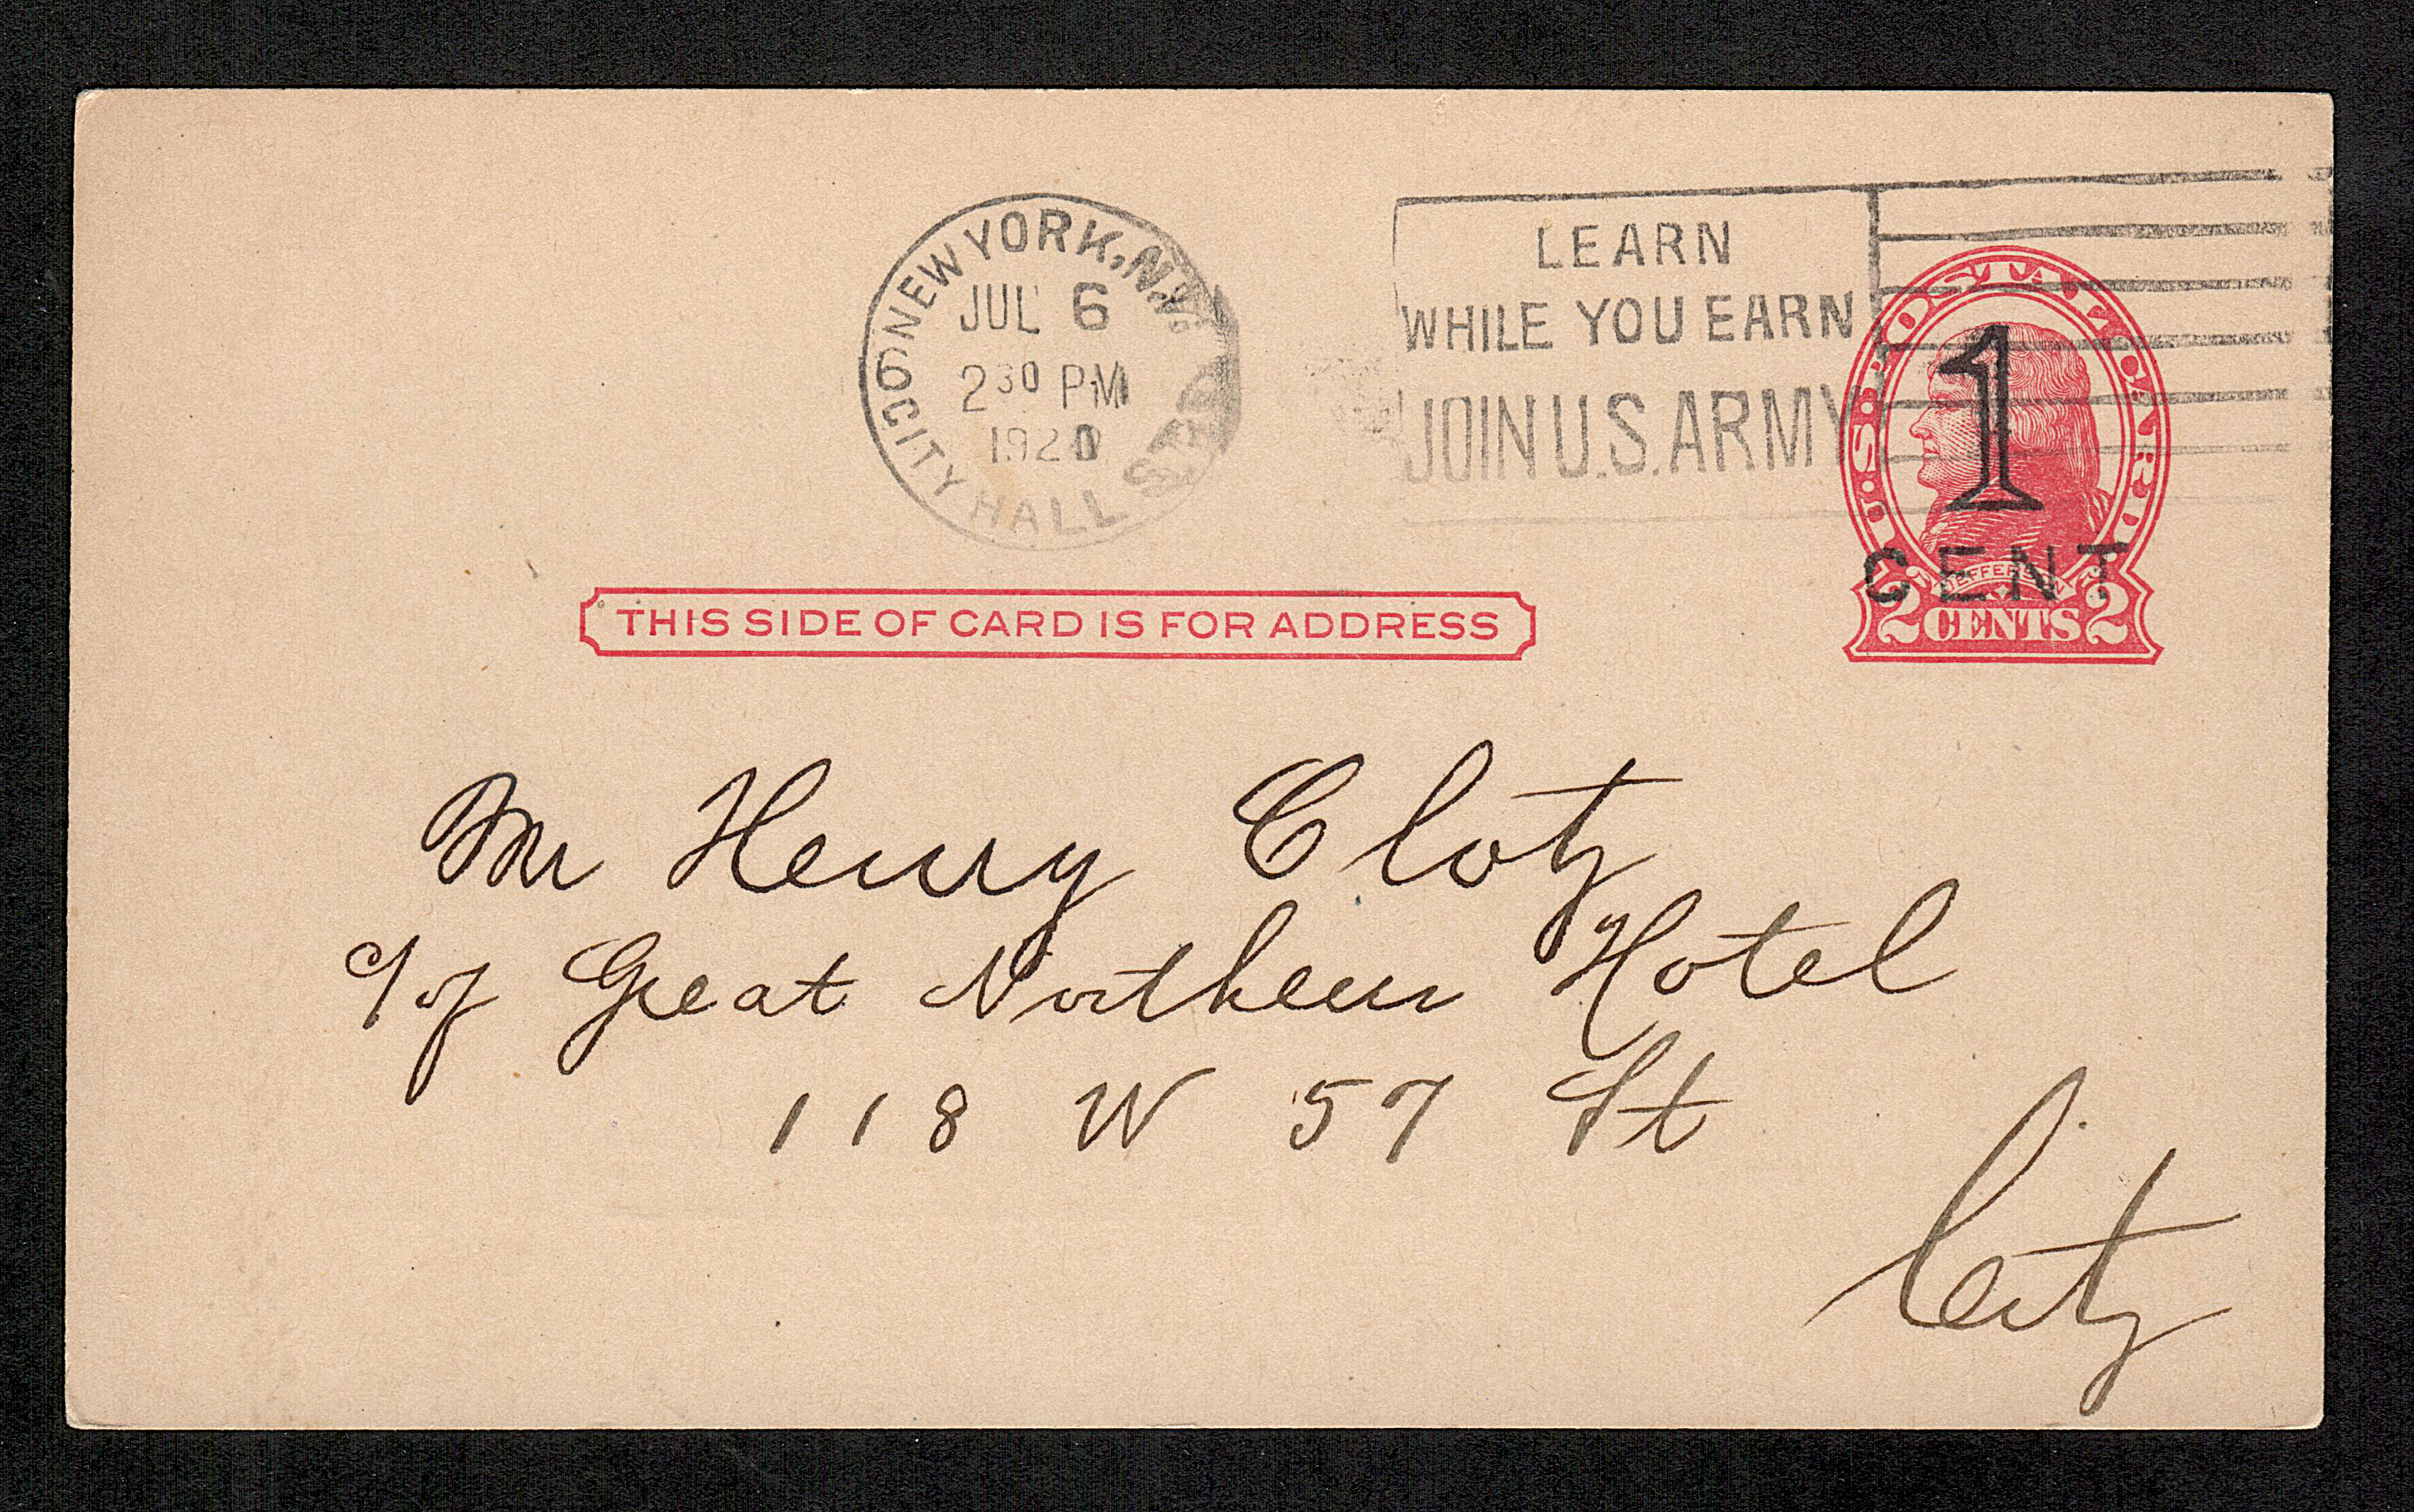 NEW YORK, N.Y.
JUL 6
2 30 PM
1920
CITY HALL STA.
LEARN
WHILE YOU EARN
JOIN U.S. ARMY
U.S. POSTAL CARD
1
CENT
JEFFERSON
2 CENTS 2
THIS SIDE OF CARD IS FOR ADDRESS
Mr Henry Clotz
c/of Great Northern Hotel
118 W 57 St
City